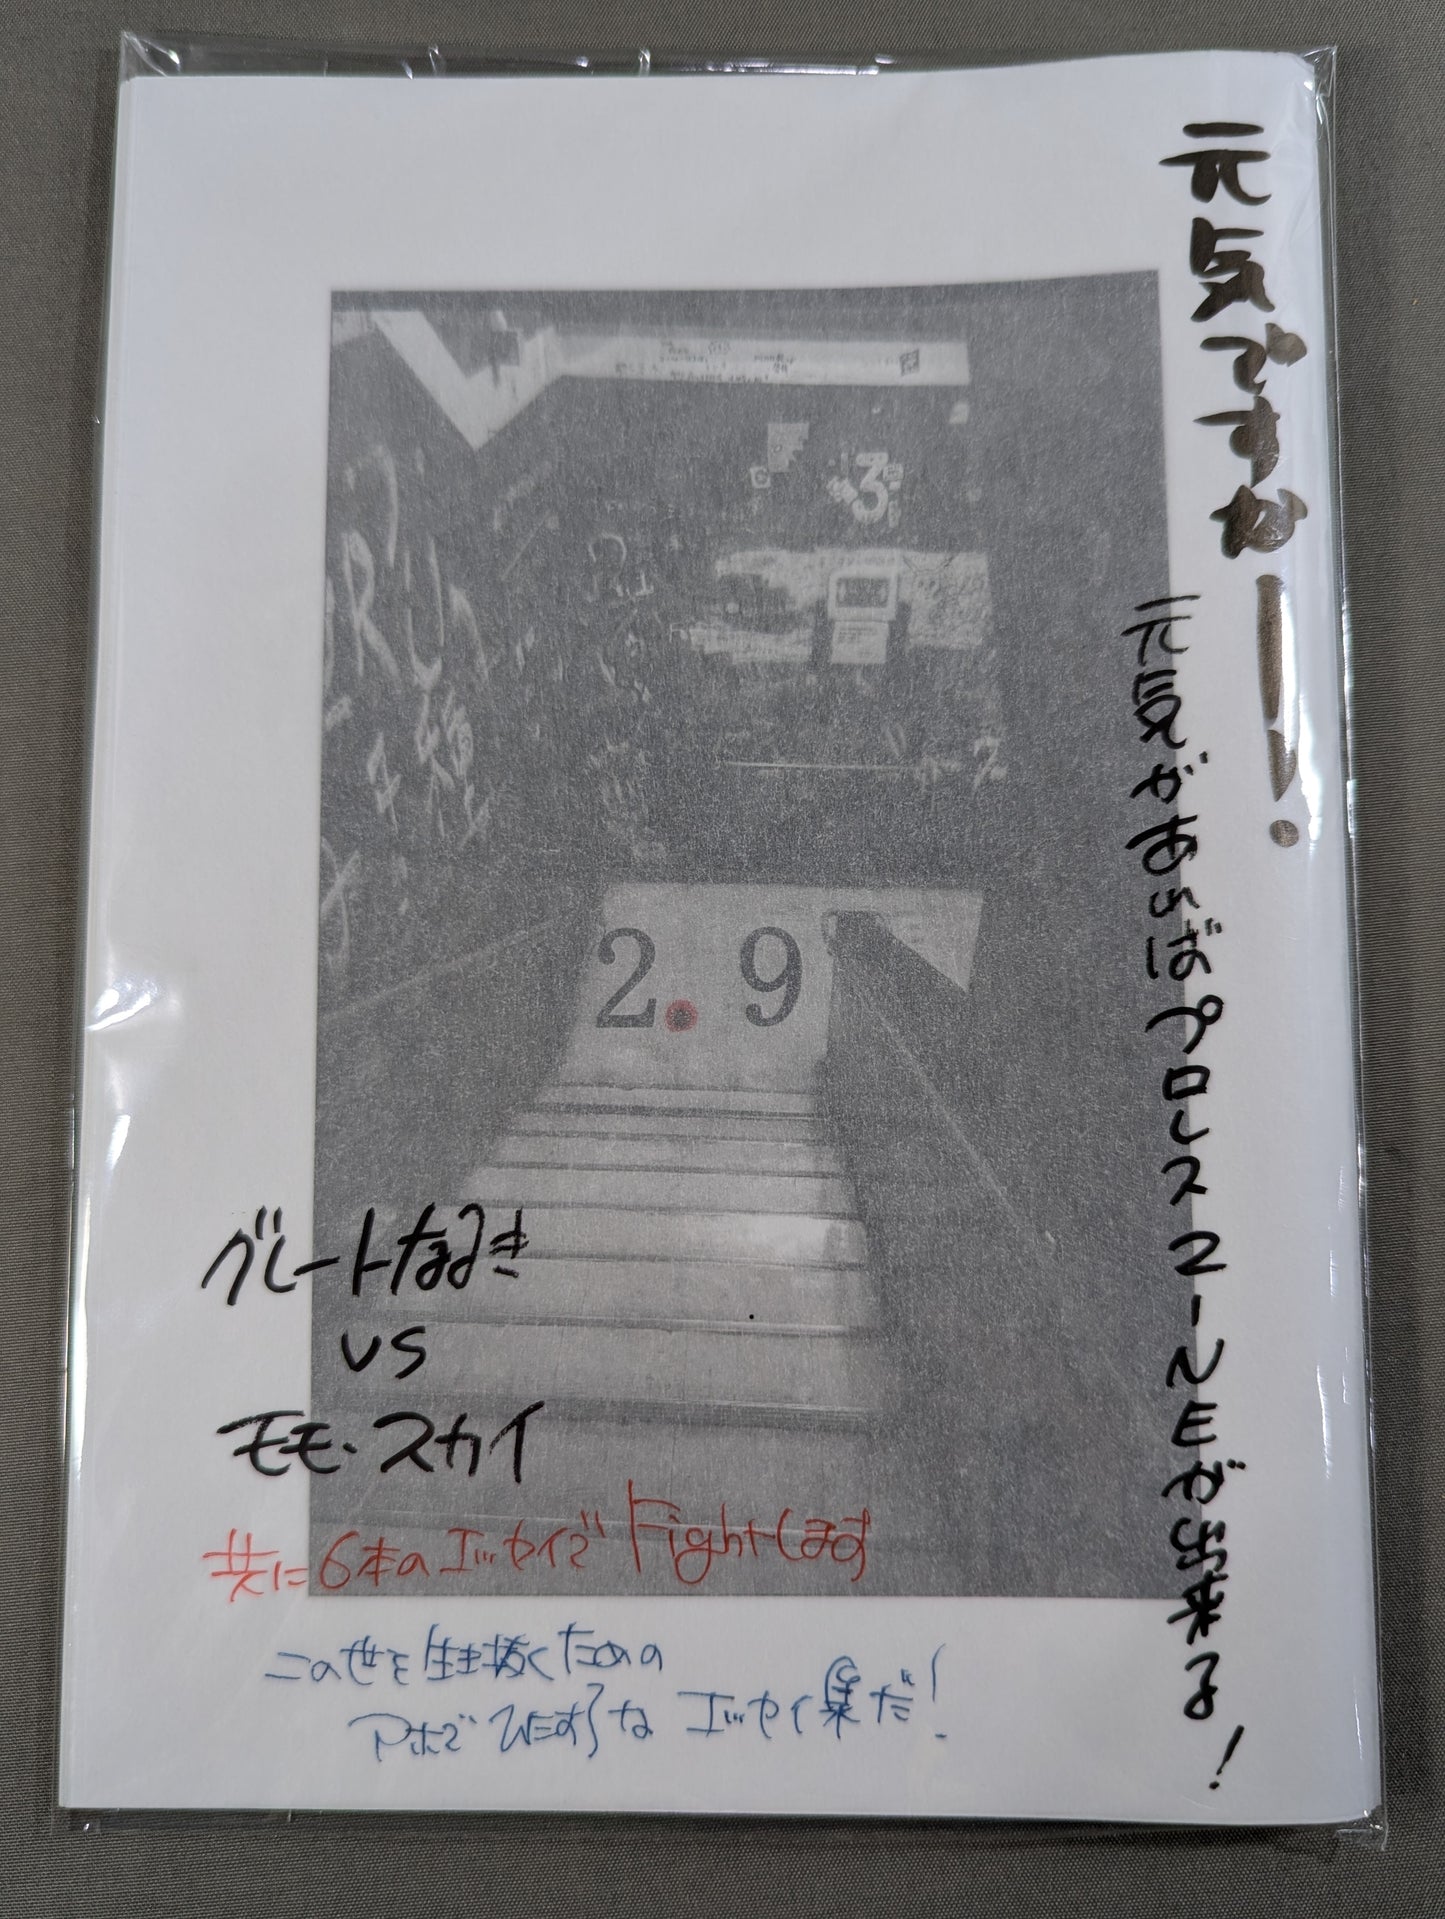 元気ですかー!
元気があればプロレスZINEが出来る!
3
2.9
グレートなみき
VS
モモ・スカイ
共に6本のエッセイでFightします
この世を生き抜くための
アホでひたすらなエッセイ集だ!